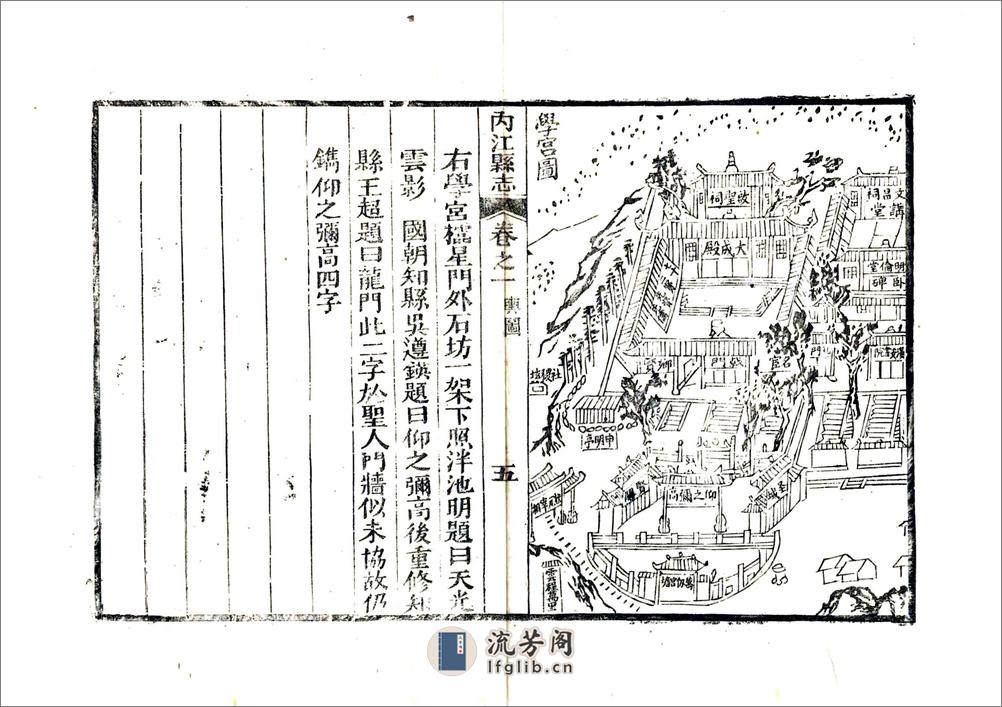 學宮圖
文昌祠
講堂
啟聖祠
大成殿
明倫堂
臥碑
戟門
鄉賢
名宦
禮門
社稷壇
申明亭
仰之彌高
聖域
賢關
萬仞宮牆
雲程萬里
內江縣志
卷之一
輿圖
五
右學宮櫺星門外石坊一架下照泮池明題曰天光
雲影 國朝知縣吳遵鍈題曰仰之彌高後重修知
縣王超題曰龍門此二字於聖人門牆似未協故仍
鐫仰之彌高四字
流芳阁
lfglib.cn